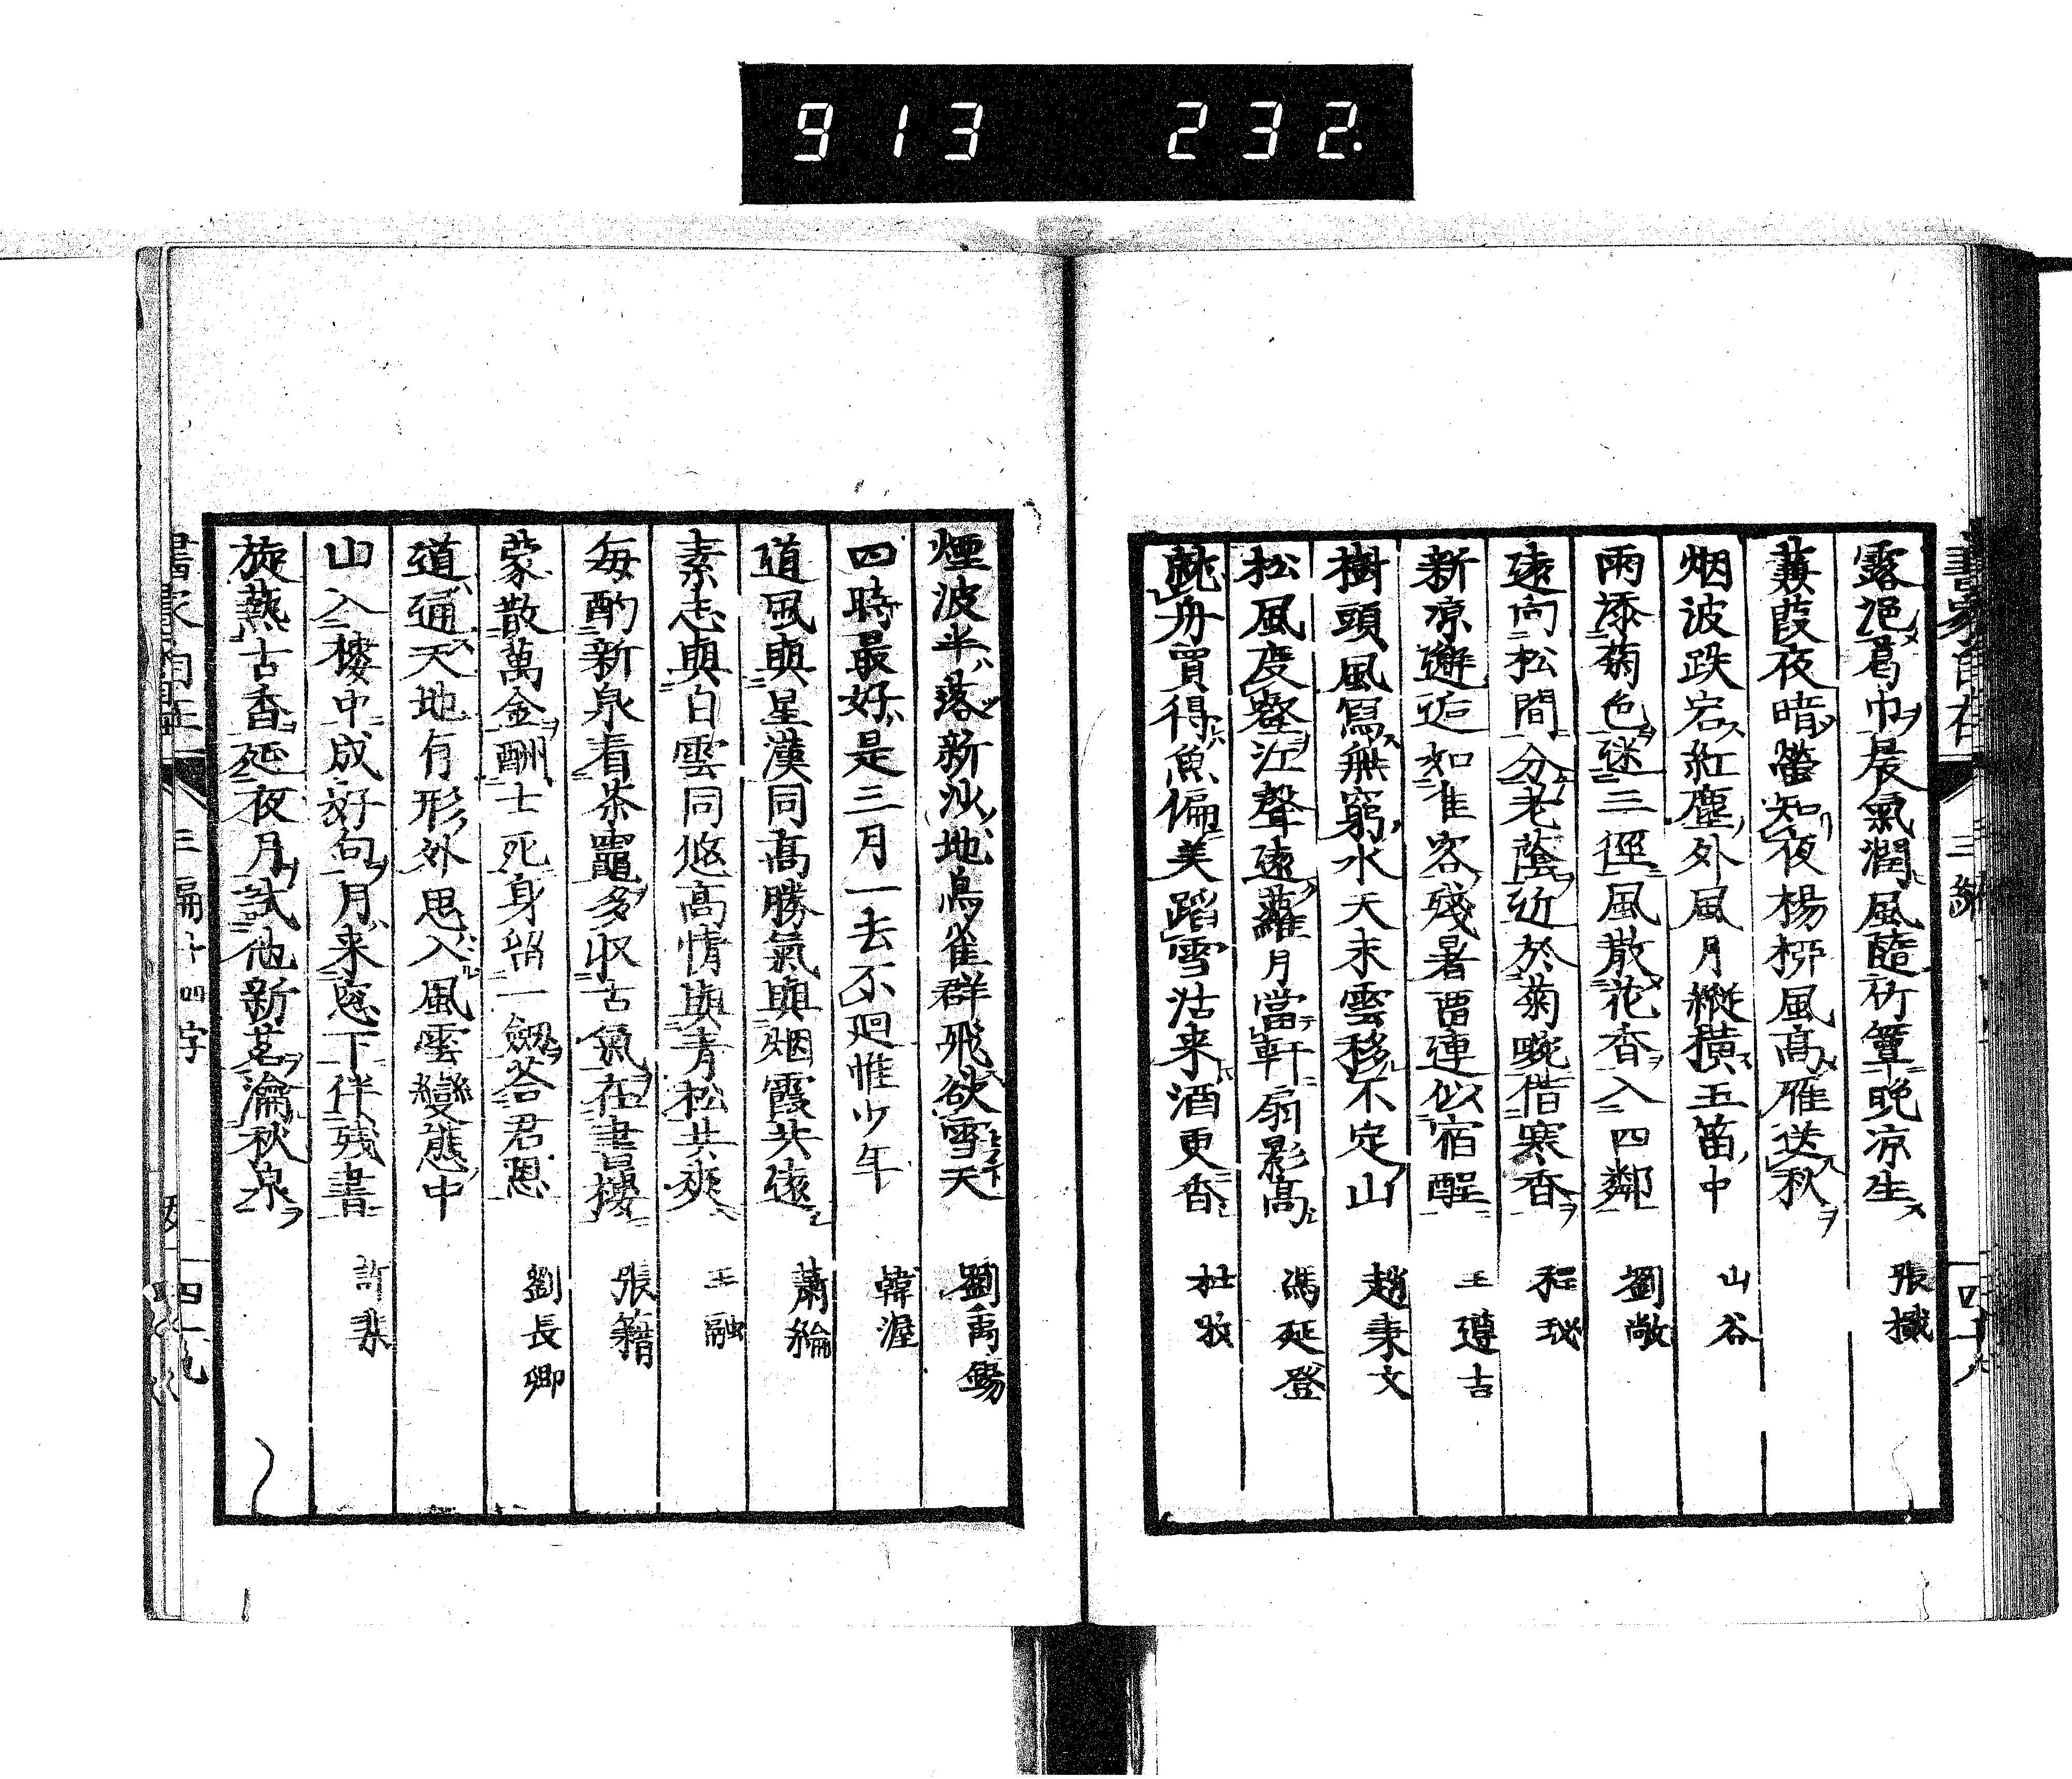 913 232.
露浥葛巾晨氣潤風隨竹簟晩凉生 張櫼
蒹葭夜暗螢知夜楊桺風高雁送秋
烟波跌宕紅塵外風月縱横玉笛中 山谷
雨添菊色迷三徑風散花香入四鄰 劉敞
遠向松間分老蔭近於菊畹借寒香 程珌
新凉邂逅如佳客殘暑畱連似宿酲 王遵吉
樹頭風寫無窮水天末雲移不定山 趙秉文
松風度壑江聲遠蘿月當軒扇影高 馮延登
就舟買得魚偏美蹈雪沽来酒更香 杜牧
煙波半落新沙地鳥雀群飛欲雪天 劉禹錫
四時最好是三月一去不廻惟少年 韓渥
道風與星漢同高勝氣與烟霞共遠 蕭綸
素志與白雲同悠高情與青松共爽 王融
每酌新泉看茶竈多収古氣在書樓 張籍
蒙散萬金酬士死身留一劔荅君恩 劉長卿
道通天地有形外思入風雲變態中
山入樓中成好句月来窓下伴残書 許棐
旋爇古香延夜月試他新茗瀹秋泉
三編十四字
四十九